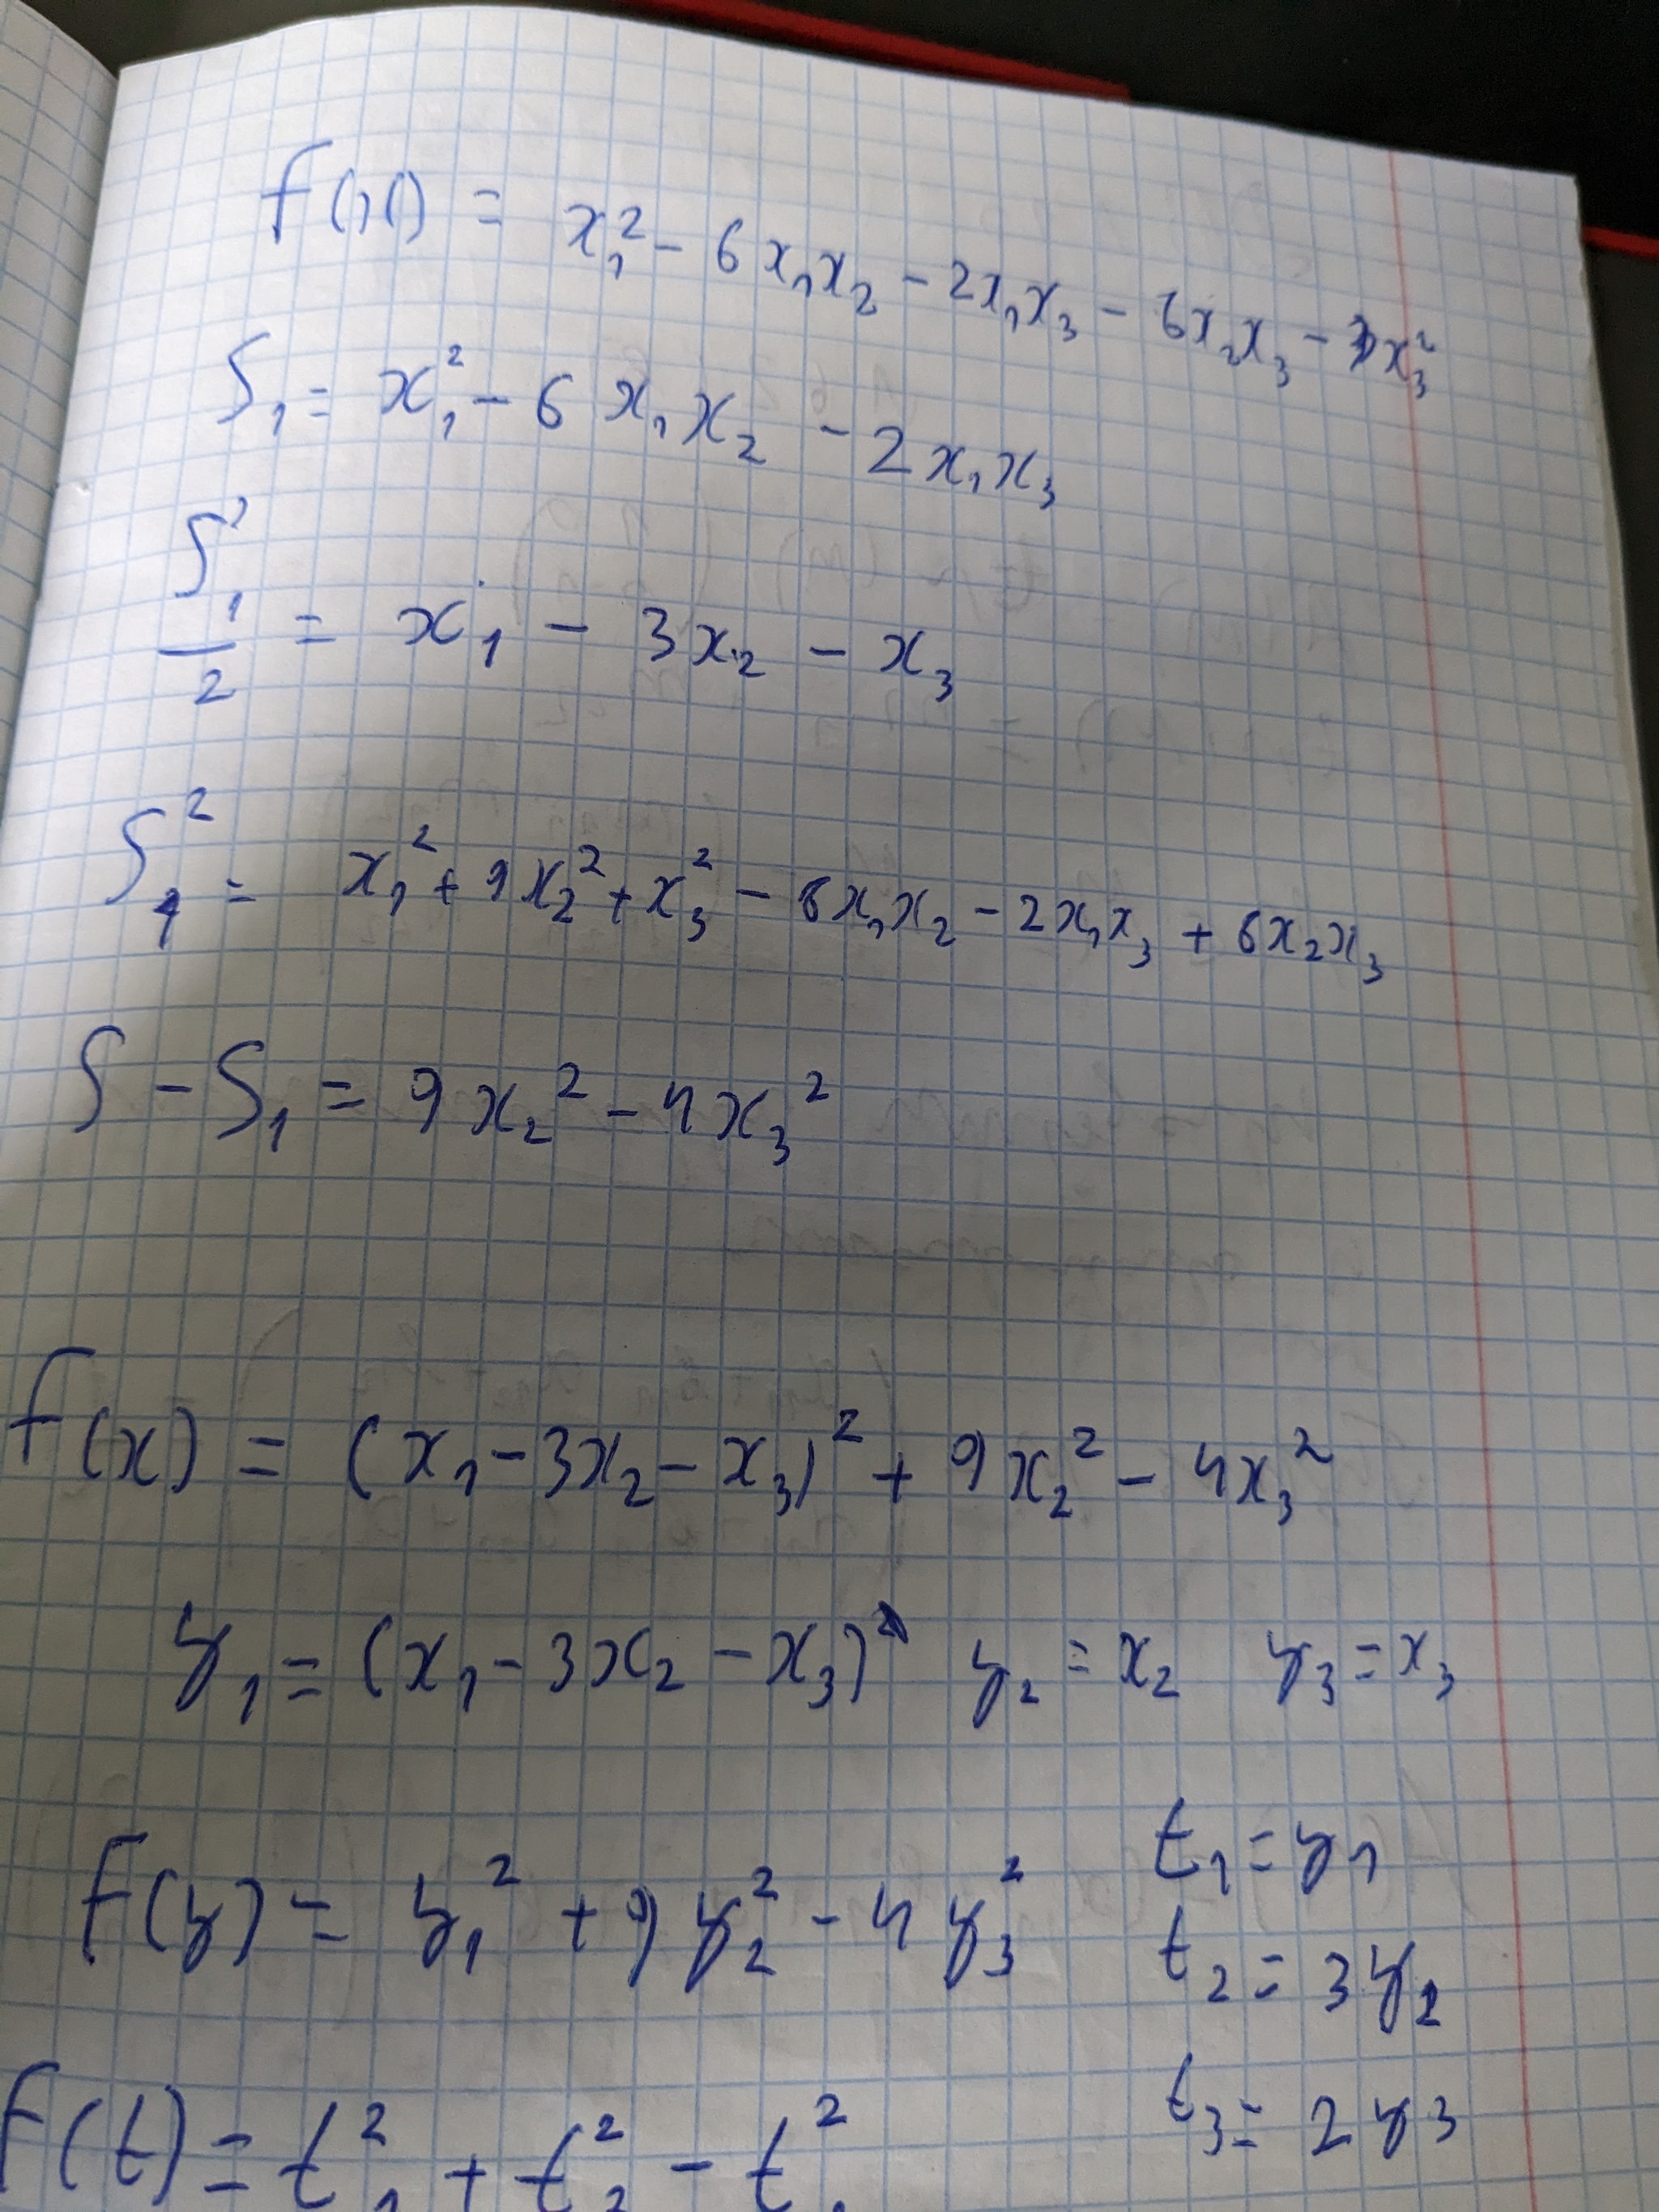 f(x) = x₁² - 6x₁x₂ - 2x₁x₃ - 6x₂x₃ - 3x₃²
S₁ = x₁² - 6x₁x₂ - 2x₁x₃
S₁'/2 = x₁ - 3x₂ - x₃
S₁² = x₁² + 9x₂² + x₃² - 6x₁x₂ - 2x₁x₃ + 6x₂x₃
S - S₁ = 9x₂² - 4x₃²
f(x) = (x₁ - 3x₂ - x₃)² + 9x₂² - 4x₃²
y₁ = (x₁ - 3x₂ - x₃) y₂ = x₂ y₃ = x₃
f(y) = y₁² + 9y₂² - 4y₃²
t₁ = y₁
t₂ = 3y₂
t₃ = 2y₃
f(t) = t₁² + t₂² - t²